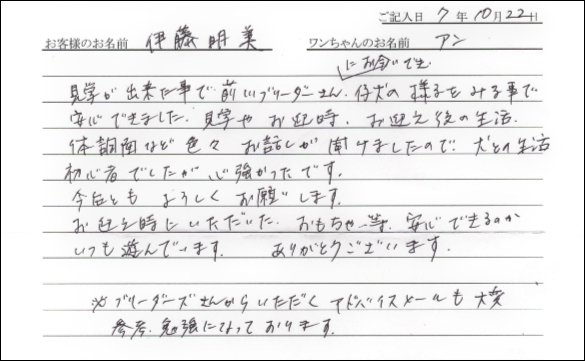 ご記入日 7年10月22日
お客様のお名前 伊藤明美 ワンちゃんのお名前 アン
にお会いでき
見学が出来た事で前いブリーダーさん、仔犬の様子をみる事で
安心できました。見学やお迎時、お迎え後の生活、
体調面など色々お話しが聞けましたので、犬との生活
初心者でしたが心強かったです。
今后ともよろしくお願いします。
お迎え時にいただいた、おもちゃ等、安心できるのか
いつも遊んでいます。 ありがとうございます。
※ブリーダーズさんからいただくアドバイスメールも大変
参考、勉強になっております。